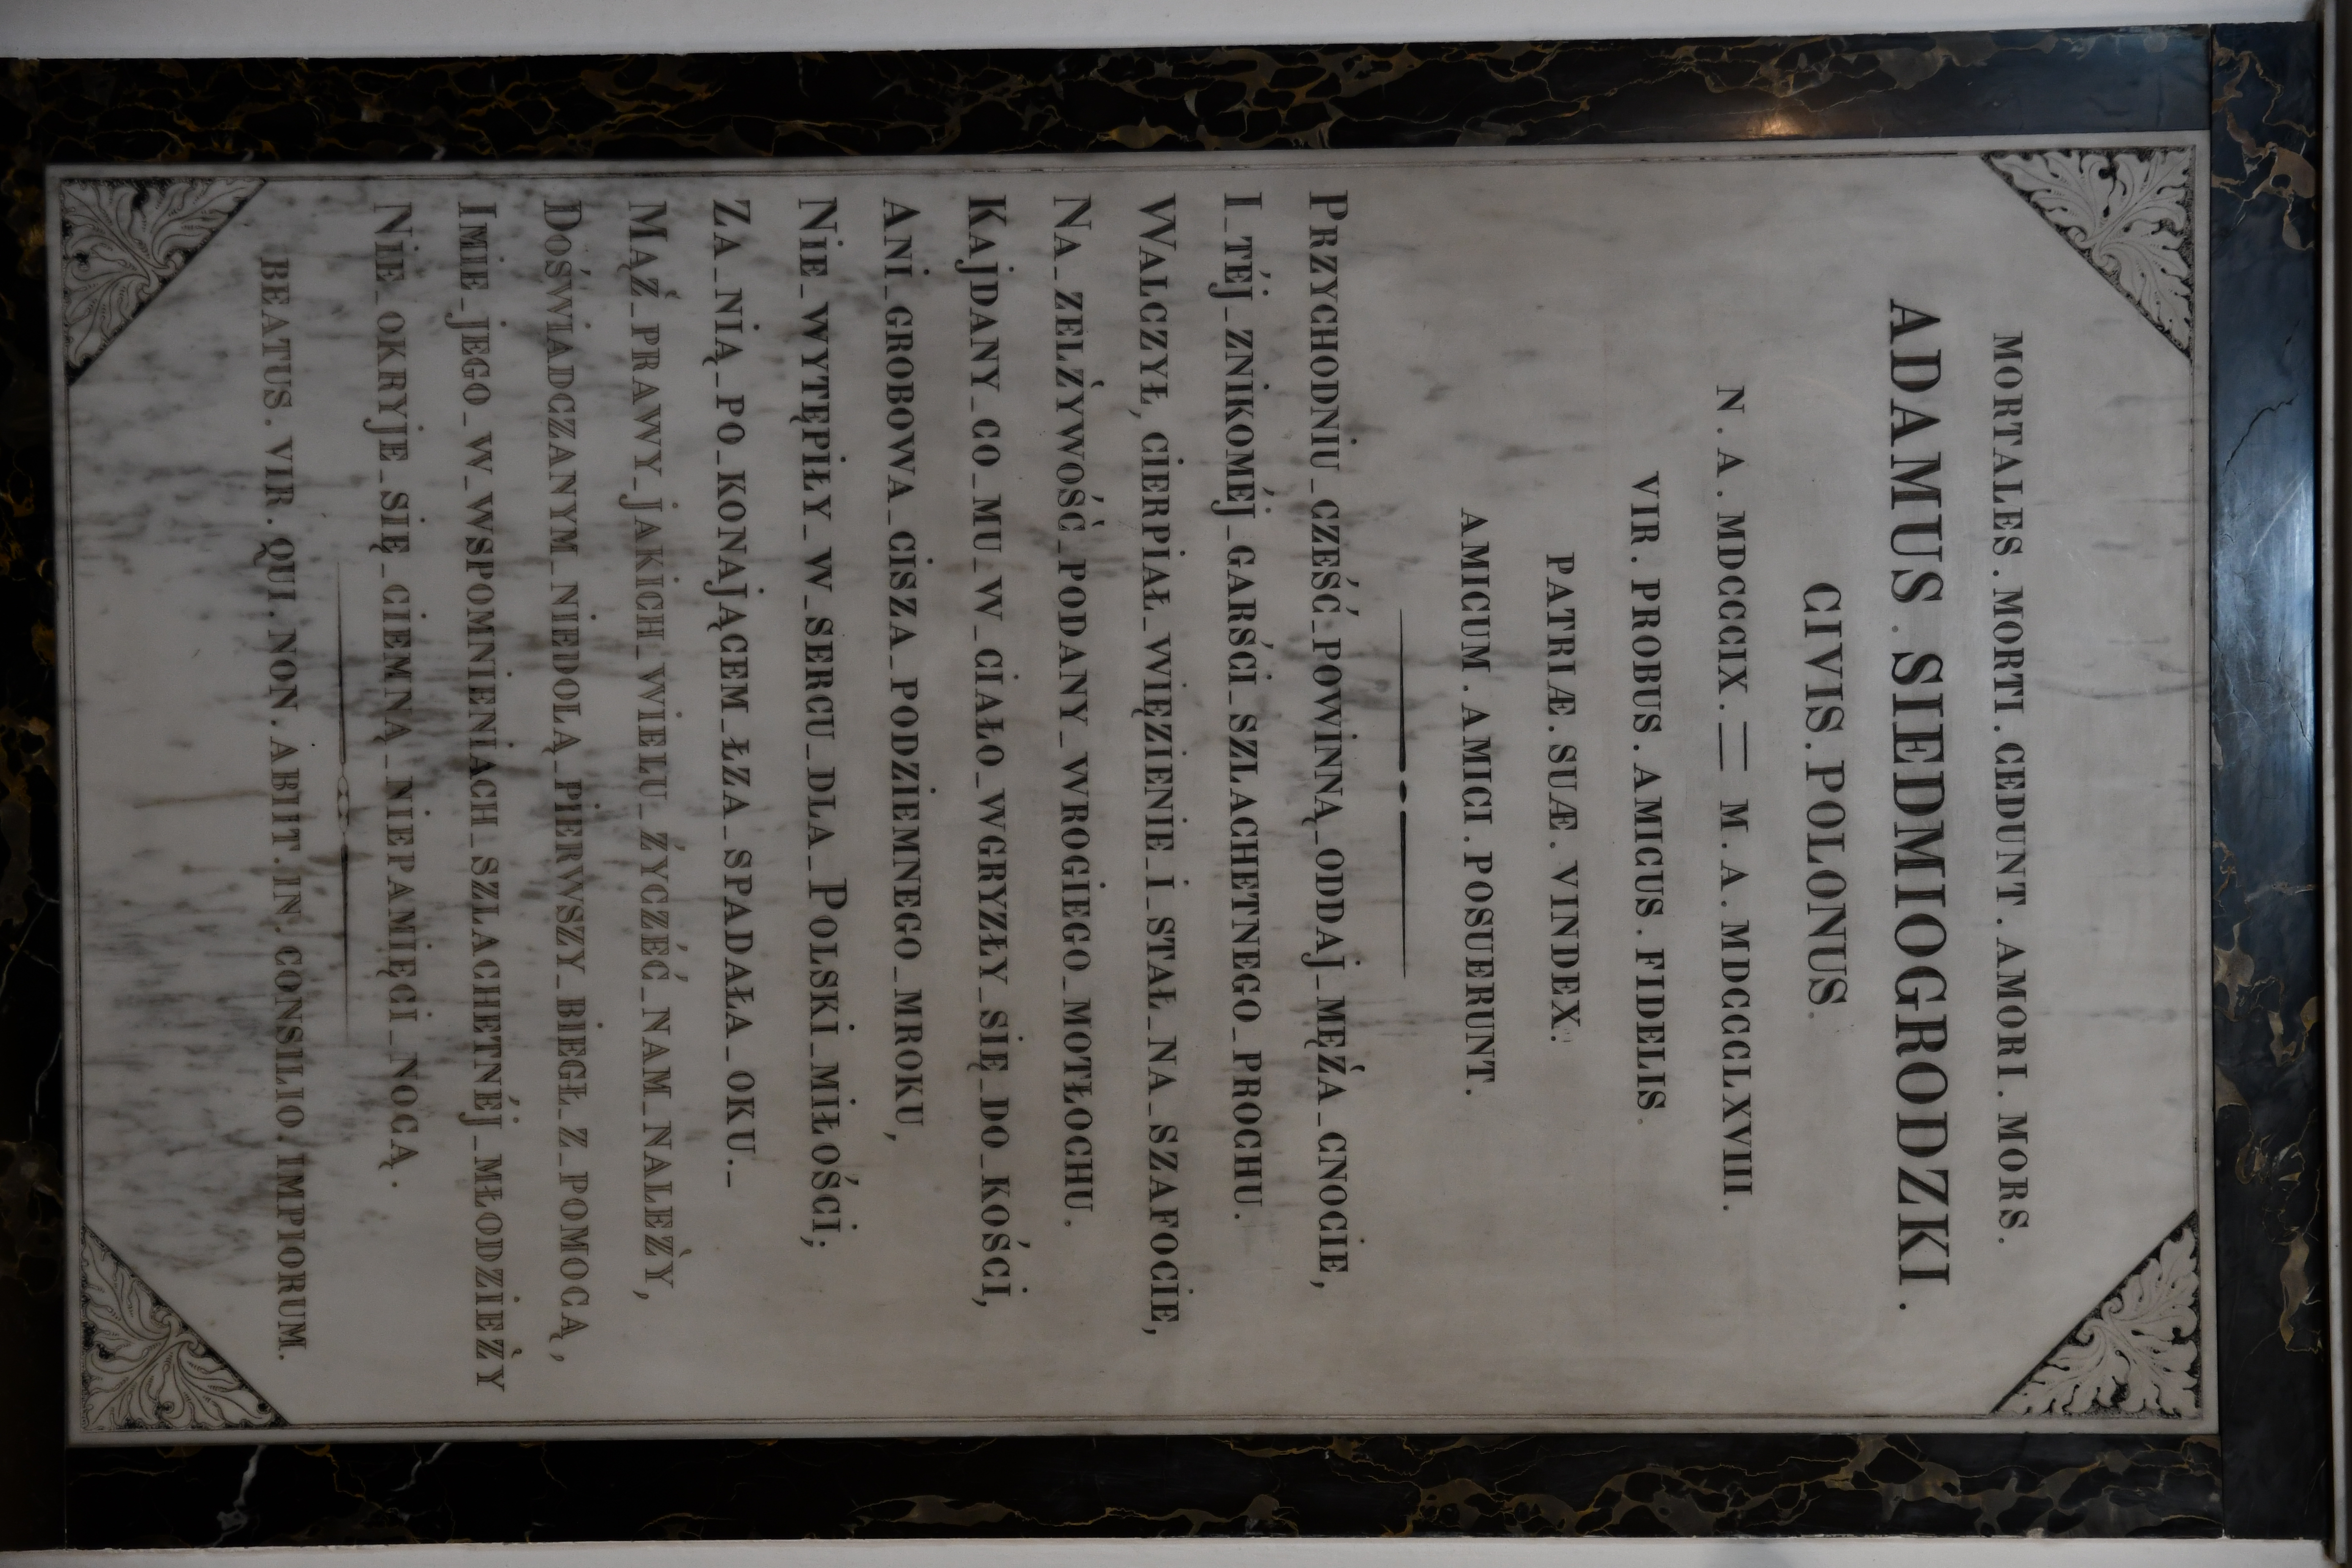 MORTALES . MORTI . CEDUNT . AMORI . MORS .
ADAMUS . SIEDMIOGRODZKI .
CIVIS . POLONUS .
N . A . MDCCCIX . = M . A . MDCCCLXVIII .
VIR . PROBUS . AMICUS . FIDELIS .
PATRIÆ . SUÆ . VINDEX .
AMICUM . AMICI . POSUERUNT .
PRZYCHODNIU _ CZEŚĆ _ POWINNĄ _ ODDAJ _ MĘŻA _ CNOCIE,
I _ TÉJ _ ZNIKOMÉJ _ GARŚCI _ SZLACHETNEGO _ PROCHU .
WALCZYŁ, CIERPIAŁ _ WIĘZIENIE _ I _ STAŁ _ NA _ SZAFOCIE,
NA _ ZELŻYWOŚĆ _ PODANY _ WROGIEGO _ MOTŁOCHU .
KAJDANY _ CO _ MU _ W _ CIAŁO _ WGRYZŁY _ SIĘ _ DO _ KOŚCI,
ANI _ GROBOWA _ CISZA _ PODZIEMNEGO _ MROKU,
NIE _ WYTĘPIŁY _ W _ SERCU _ DLA _ POLSKI _ MIŁOŚCI;
ZA _ NIĄ _ PO _ KONAJĄCEM _ ŁZA _ SPADAŁA _ OKU . _
MĄŻ _ PRAWY _ JAKICH _ WIELU _ ŻYCZÉĆ _ NAM _ NALEŻY,
DOŚWIADCZANYM _ NIEDOLĄ _ PIERWSZY _ BIEGŁ _ Z _ POMOCĄ,
IMIE _ JEGO _ W _ WSPOMNIENIACH _ SZLACHETNÉJ _ MŁODZIEŻY
NIE _ OKRYJE _ SIĘ _ CIEMNĄ _ NIEPAMIĘCI _ NOCĄ .
BEATUS . VIR . QUI . NON . ABIIT . IN . CONSILIO . IMPIORUM .